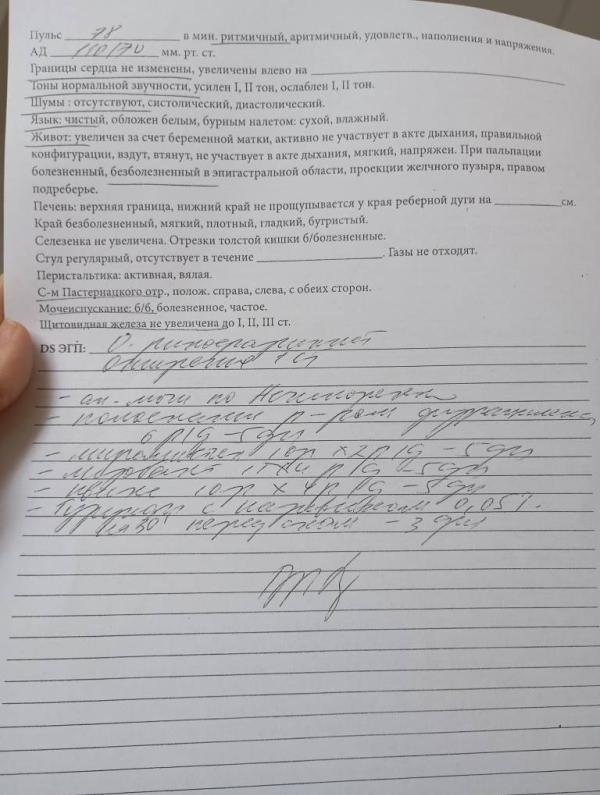 Пульс 78 в мин. ритмичный, аритмичный, удовлетв., наполнения и напряжения.
АД 110/70 мм. рт. ст.
Границы сердца не изменены, увеличены влево на
Тоны нормальной звучности, усилен I, II тон, ослаблен I, II тон.
Шумы : отсутствуют, систолический, диастолический.
Язык: чистый, обложен белым, бурным налетом: сухой, влажный.
Живот: увеличен за счет беременной матки, активно не участвует в акте дыхания, правильной
конфигурации, вздут, втянут, не участвует в акте дыхания, мягкий, напряжен. При пальпации
болезненный, безболезненный в эпигастральной области, проекции желчного пузыря, правом
подреберье.
Печень: верхняя граница, нижний край не прощупывается у края реберной дуги на см.
Край безболезненный, мягкий, плотный, гладкий, бугристый.
Селезенка не увеличена. Отрезки толстой кишки б/болезненные.
Стул регулярный, отсутствует в течение . Газы не отходят.
Перистальтика: активная, вялая.
С-м Пастернацкого отр., полож. справа, слева, с обеих сторон.
Мочеиспускание: б/б, болезненное, частое.
Щитовидная железа не увеличена до I, II, III ст.
DS ЭГП: О. ринофарингит
Ожирение 1 ст
- ан. мочи по Нечипоренко
- полоскание р-ром
6 р/д - 5 дн
- 2 р/д - 5 дн
- р/д - 5 дн
- р/д - 5 дн
- с 0,05%.
на 30' перед сном - 3 дня